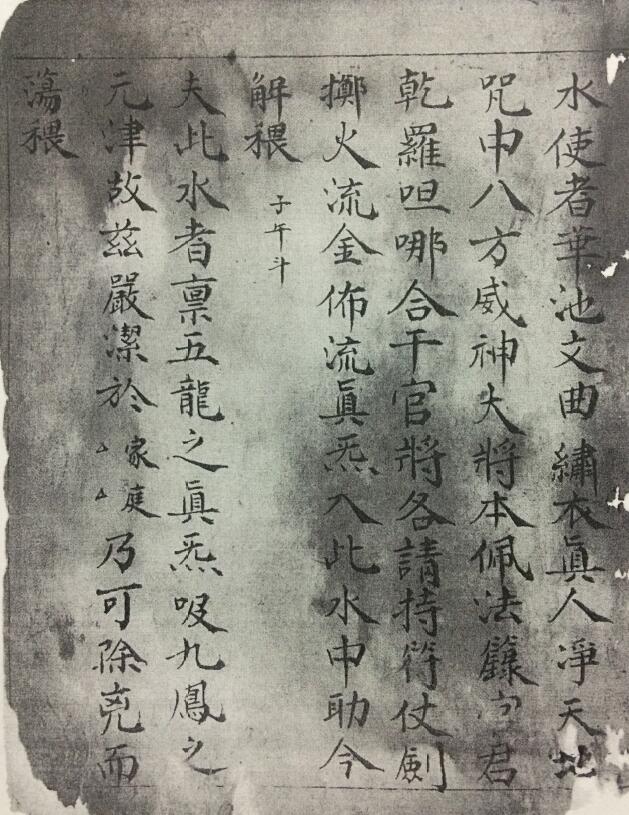 水使者華池文曲繡衣眞人淨天地
咒中八方威神大將本佩法籙君
乾羅呾哪合干官將各請持符仗劍
擲火流金佈流眞炁入此水中助今
解穢 子午斗
夫此水者禀五龍之眞炁吸九鳳之
元津故茲嚴潔於厶厶家庭乃可除兇而
蕩穢